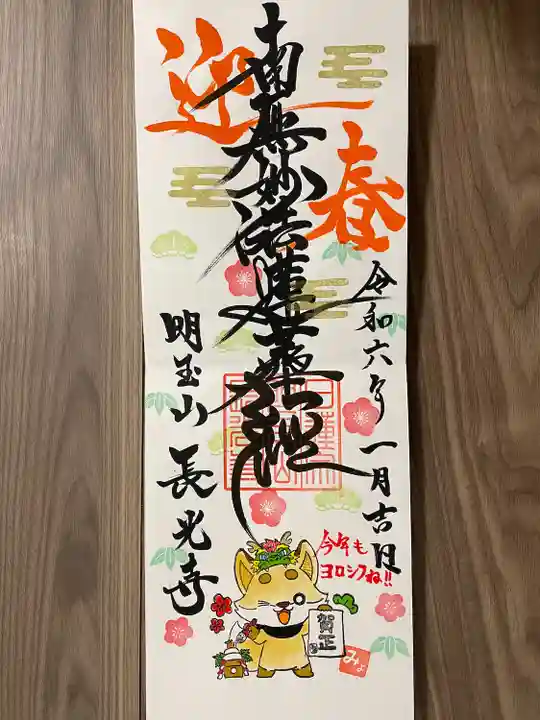 迎春
南無妙法蓮華経
令和六年 一月吉日
明玉山 長光寺
今年も
ヨロシクね!!
賀正
みょ